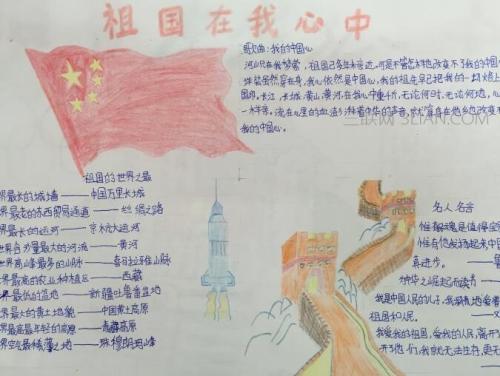 祖国在我心中
歌曲:我的中国心
河山只在我梦萦,祖国已多年未亲近,可是不管怎样也改变不了我的中国
洋装虽然穿在身,我心依然是中国心,我的祖先早已把我的一切烙上
国印。长江,长城,黄山,黄河在我心中重千斤,无论何时,无论何地,心
一样亲。流在心里的血,澎湃着中华的声音,就算身在他乡也改变不
我的中国心。
三联网 3LIAN.COM
祖国的世界之最
界最长的城墙——中国万里长城
界最老的东西贸易通道——丝绸之路
界最长的运河——京杭大运河
世界含沙量最大的河流——黄河
世界高峰最多的山脉——喜马拉雅山脉
世界最高的农业种植区——西藏
界最低的盆地——新疆吐鲁番盆地
界最大的黄土地貌——中国黄土高原
界最高最年轻的高原——青藏高原
界空气最稀薄之地——珠穆朗玛峰
名人名言
惟有民魂是值得宝
惟有他发扬起来中国
真进步。——鲁
为中华之崛起而读书
我是中国人民的儿子,我深情地爱着
祖国和人民。
我爱我的祖国,爱我的人民,离开
开他们,我就无法生存,更无